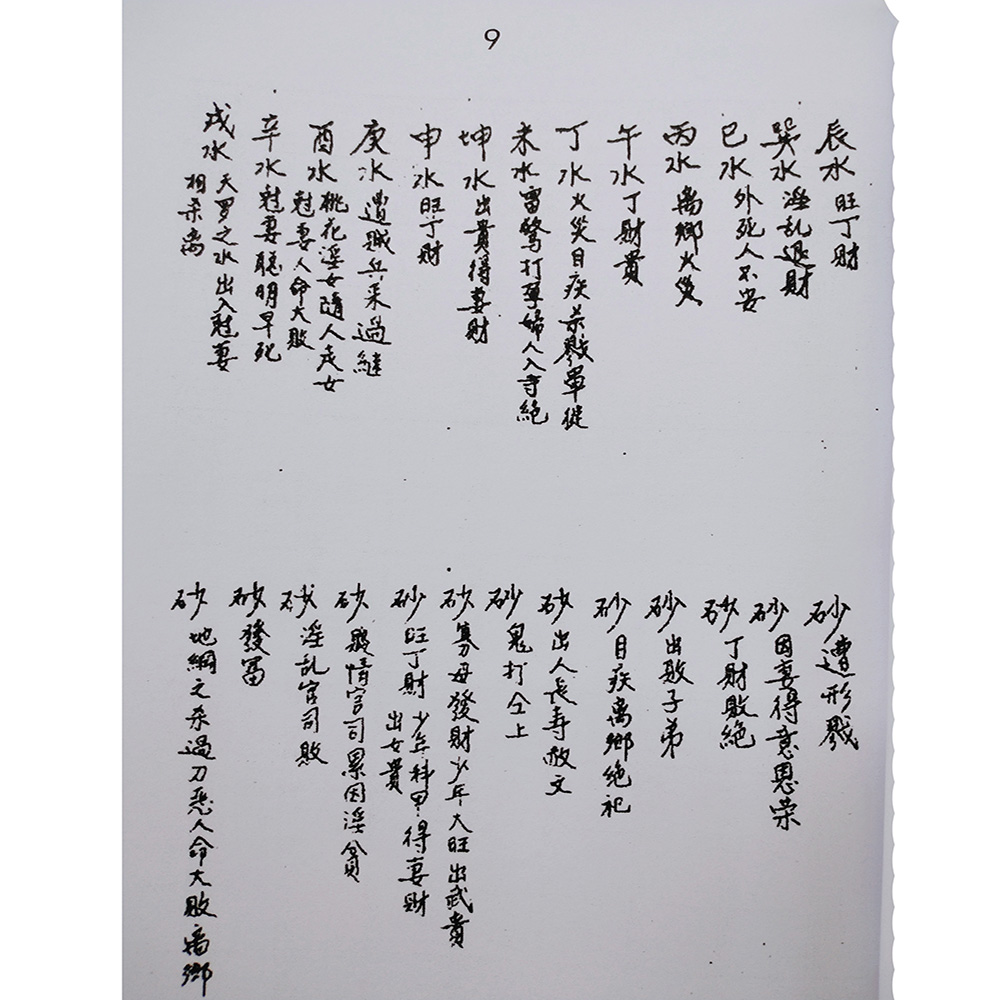 9
辰水旺丁財
巽水淫乱退財
巳水外死人不安
丙水离鄉火災
午水丁財貴
丁水火災目疾杀戮軍徒
未水雷驚打孕婦人入寺絕
坤水出貴得妻財
申水旺丁財
庚水遭賊兵杀過継
酉水桃花淫女隨人走女
尅妻人命大敗
辛水尅妻聰明早死
戌水天罗之水出入尅妻
相杀离
砂遭形戮
砂因妻得意恩荣
砂丁財敗絕
砂出敗子弟
砂目疾离鄉绝祀
砂出人長寿敗文
砂鬼打仝上
砂寡母發財少年大旺出武貴
砂旺丁財少年科甲得妻財
出女貴
砂 情官司累因淫貧
砂淫乱官司敗
砂發富
砂地網之杀過刀惡人命大敗离鄉